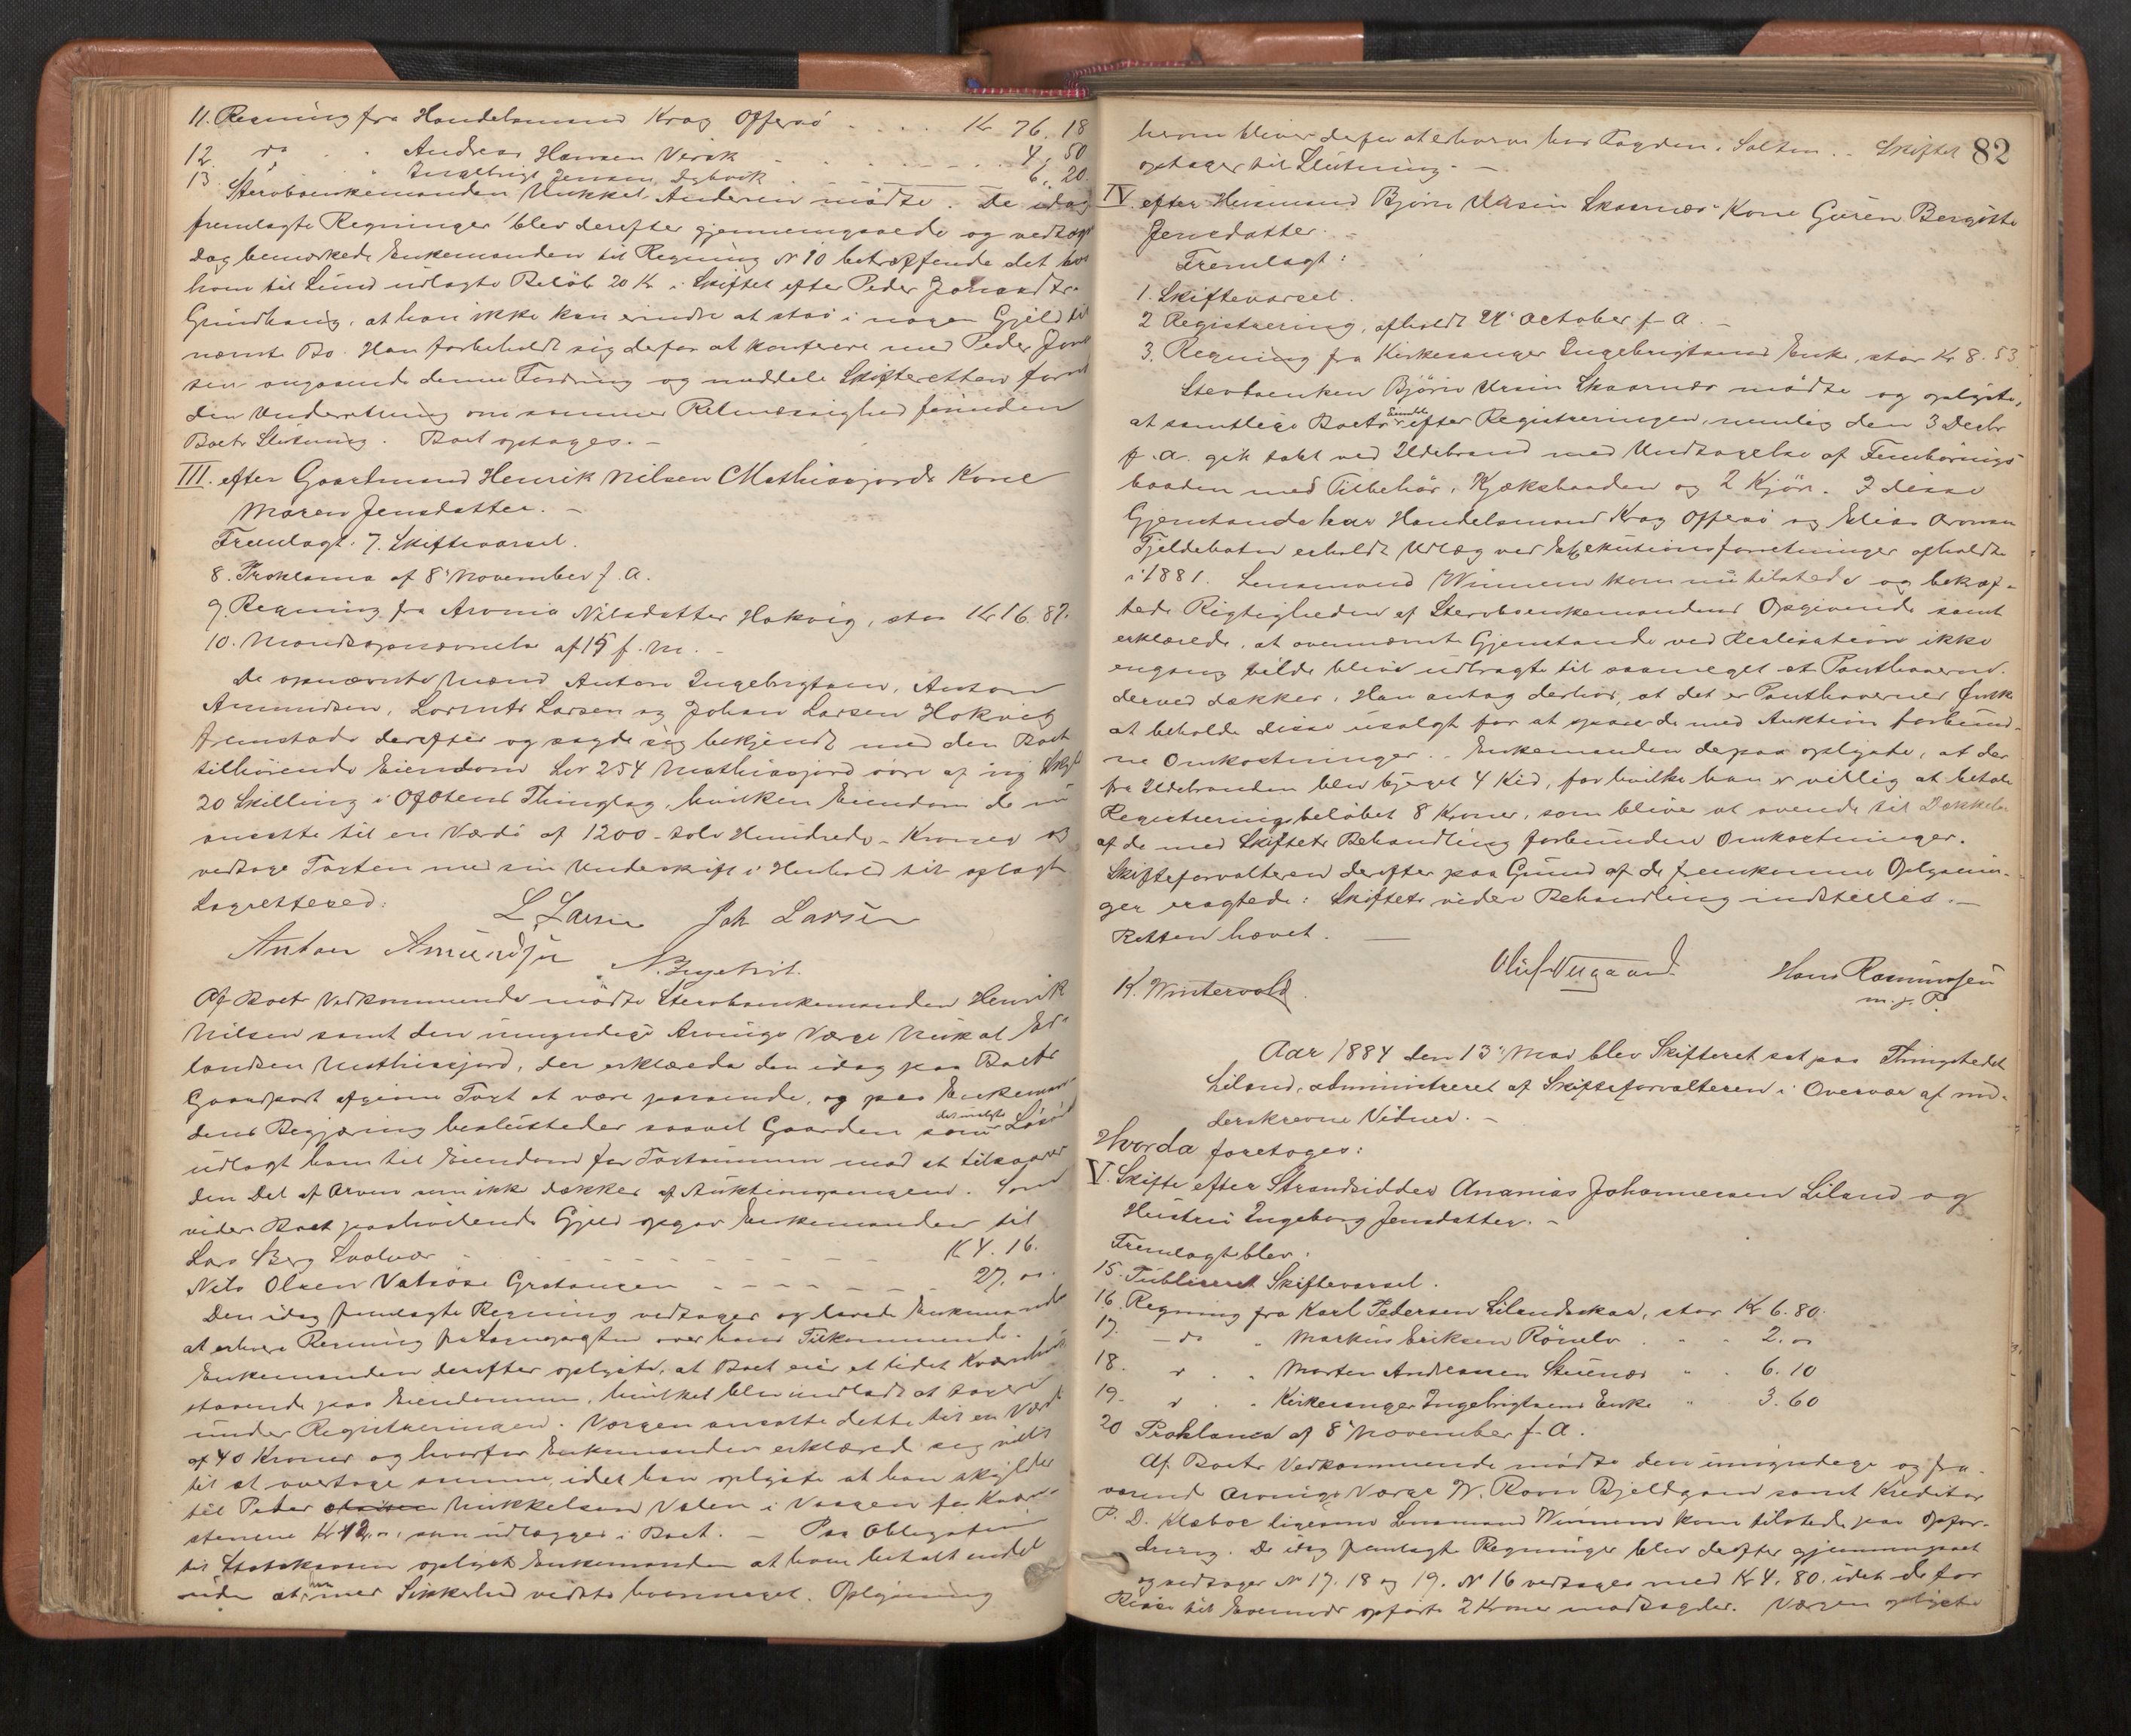 11. Regning fra Handelsmand Krag Offersö . . . . Kr 76. 18
12. do . . Andreas Hansen Virak . . . . . 4, 50
13. " " Ingebrigt Jensen Dybvik . . . 6,, 20.
Stervboenkemanden Mikkel Andersen mödte. De idag
fremlagte Regninger blev derefter gjennemgaaede og vedtaget
dog bemærkede Enkemanden til Regning No 10 betræffende det hos
ham til Lund udlagte Belöb 20 Kr i Skiftet efter Peder
Grundhaug, at han ikke kan erindre at staa i nogen Gjeld til
nævnte Bo. Han forbeholdt sig derfor at konferere med Peder
sen angaaende denne Fordring og meddele Skifteretten forud
den Underretning om sammes Retmæssighed forinden
Boets Slutning. Boet optages. -
III. efter Gaardmand Henrik Nilsen Mathisfjords Kone
Maren Jensdatter. -
Fremlagt. 7. Skiftevarsel.
8. Proklama af 8' November f. A.
9. Regning fra Aronia Nilsdatter Hokvig, stor Kr 16. 87.
10. Mandsopnævnelse af 15 f. M. -
De opnævnte Mænd Anton Ingebrigtsen, Anton
Amundsen, Lorents Larsen og Johan Larsen Hokvig
fremstod derefter og sagde sig bekjendt med den Boet
tilhörende Eiendom Lör 254 Mathisfjord övre af ny Skyld
20 Skilling i Ofotens Thinglag, hvilken Eiendom de nu
ansatte til en Værdi af 1200 - tolv Hundrede - Kroner og
vedtoge Taxten med sin Underskrift i Henhold til aflagt
Lagretteed.
L. Larsen Joh Larsen
Anton Amundsen
Af Boets Vedkommende mödte Stervboenkemanden Henrik
Nilsen samt den umyndige Arvings Værge Mikal
landsen Mathisfjord, der erklærede den idag paa Boets
Gaardpart afgivne Taxt at være passende, og paa Enkeman-
dens Begjæring besluttedes saavel Gaarden som det solgte Lösöre
udlagt ham til Eiendom for Taxtsummen mod at tilsvare
den Del af Arven som ikke dækkes af Auktionspengene. Som
videre Boet paahvilende Gjeld opgav Enkemanden til
Lars Berg Svolvær - - - - - - - K 4. 16.
Nils Olsen Gratangen - - - - - 27. 00.
Den idag fremlagte Regning vedtages og lovede Enkemanden
at erhverve Regning fra over hans Tilkommende.
Enkemanden derefter oplyste, at Boet eier et lidet Kværnhus
staaende paa Eiendommen, hvilket blev undladt at tages
under Registreringen. Værgen ansatte dette til en Værdi
af 40 Kroner og hvorfor Enkemanden erklærede sig villig
til at overtage samme, idet han oplyste at han skylder
til Peder Mikkelsen Valen i Vaagen for Kværn-
stenene Kr 12,,, som udlægges i Boet. - Paa Obligation
til Statskassen oplyste Enkemanden at have betalt endel
uden at han med Sikkerhed vidste hvormeget. Oplysning
82
herom bliver derfor at erhverve hos Fogden i Salten. - Skiftet
optages til Slutning. -
IV. efter Huusmand Björn Ursin Skaarnæs Kone Guren Bergitte
Jensdatter. -
Fremlagt:
1. Skiftevarsel.
2 Registrering, afholdt 24' October f. A. -
3. Regning fra Kirkesanger Ingebrigtsens Enke, stor Kr 8. 53.
Stervboenken Björn Ursin Skaarnæs mödte og oplyste,
at samtlige Boets Eiendele efter Registreringen, nemlig den 3 Decbr
f. A. gik tabt ved Ildebrand med Undtagelse af Fembörings
baaden med Tilbehör, Kjæksbaaden og 2 Kjör. I disse
Gjenstande har Handelsmand Krag Offersö og Elias Aronsen
Fjeldebotn erholdt Udlæg ved Exekutionsforretninger afholdte
i 1881. Lensmand Winnem kom nu tilstede og bekræf-
tede Rigtigheden af Stervboenkemandens Opgivende samt
erklærede, at ovennævnte Gjenstande ved Realisation ikke
engang vilde blive udbragte til saameget at Panthaverne
derved dækkes. Han antog derhos, at det er Panthavernes Önske
at beholde disse usolgt for at spare de med Auktion forbund-
ne Omkostninger. Enkemanden derpaa oplyste, at der
fra Ildebranden blev bjerget 4 Kid, for hvilke han er villig at betale
Registreringsbelöbet 8 Kroner, som bliver at anvende til Dækkelse
af de med Skiftets Behandling forbundne Omkostninger.
Skifteforvalteren derefter paa Grund af de fremkomne Oplysnin-
ger eragtede: Skiftets videre Behandling indstilles. -
Retten hævet.
K. Wintervold. Oluf Nergaard. Hans Rasmussen
m. p. P.
Aar 1884 den 13' Mai blev Skifteret sat paa Thingstedet
Liland, administreret af Skifteforvalteren i Overvær af un-
derskrevne Vidner. -
Hvorda foretoges:
V. Skifte efter Strandsidder Ananias Johannesen Liland og
Hustru Ingeborg Jensdatter. -
Fremlagt blev:
15. Publiceret Skiftevarsel.
16. Regning fra Karl Pedersen Lilandskar, stor Kr 6. 80.
17. - do " Markus Eriksen . . . 2. 00
18. d . . Morten Andreassen " . 6. 10
19. d . . Kirkesanger Ingebrigtsens Enke " 3. 60
20 Proklama af 8' November f. A.
Af Boets Vedkommende mödte den umyndige og fra-
værende Arvings Værge W. Ravn Bjeldgam samt Kreditor
P. D. Klæboe ligesom Lensmand Winnem kom tilstede paa Opfor-
dring. De idag fremlagte Regninger blev derefter gjennemgaaet
og vedtages No 17. 18 og 19. No 16 vedtages med Kr 4. 80. idet de for
Reise til Evenæs opförte 2 Kroner modsagdes. Værgen oplyste